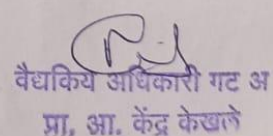 वैद्यकिय अधिकारी गट अ
प्रा. आ. केंद्र केखले